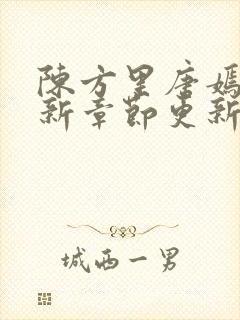 陳方里唐嫣
新章節更新
城西一男